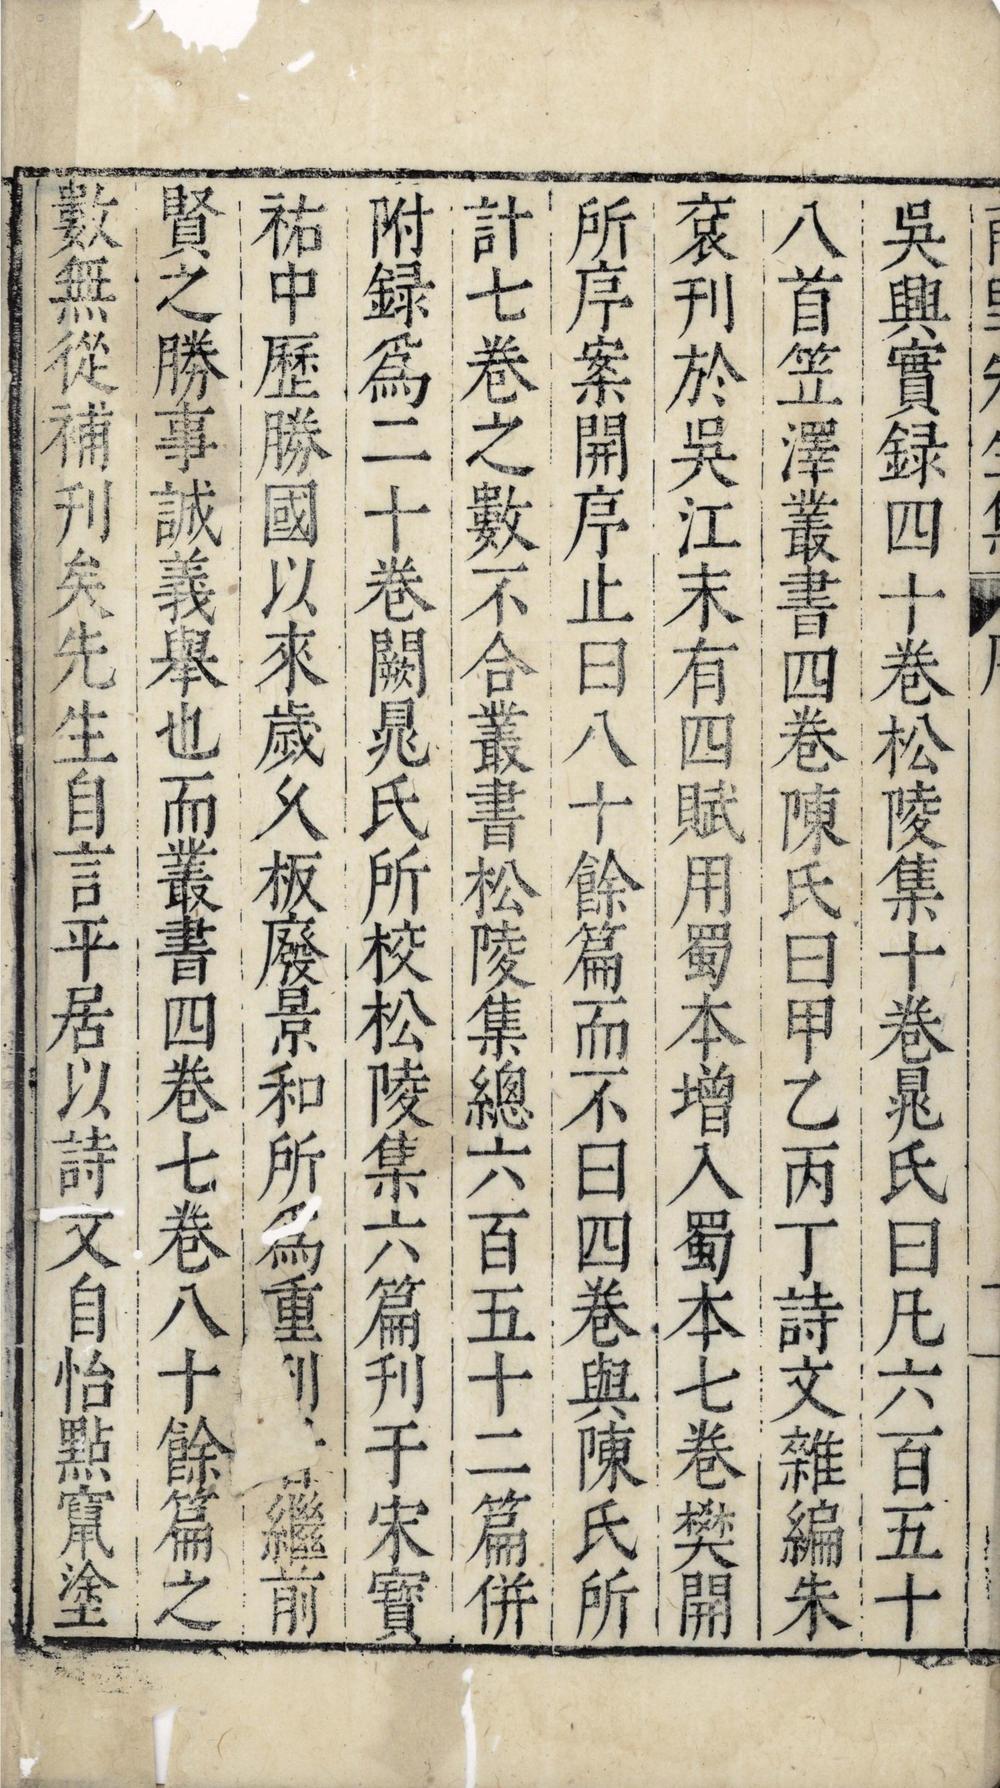 吳興實録四十巻松陵集十巻晁氏曰凡六百五十
八首笠澤叢書四巻陳氏曰甲乙丙丁詩文雜編朱
衮刊於吳江末有四賦用蜀本增入蜀本七巻樊開
所序案開序止曰八十餘篇而不曰四巻與陳氏所
計七巻之數不合叢書松陵集總六百五十二篇併
附録爲二十巻闕晁氏所校松陵集六篇刊于宋寶
祐中歷勝國以來歲久板廢景和所爲重刊繼前
賢之勝事誠義舉也而叢書四巻七巻八十餘篇之
數無從補刊矣先生自言平居以詩文自怡點竄塗